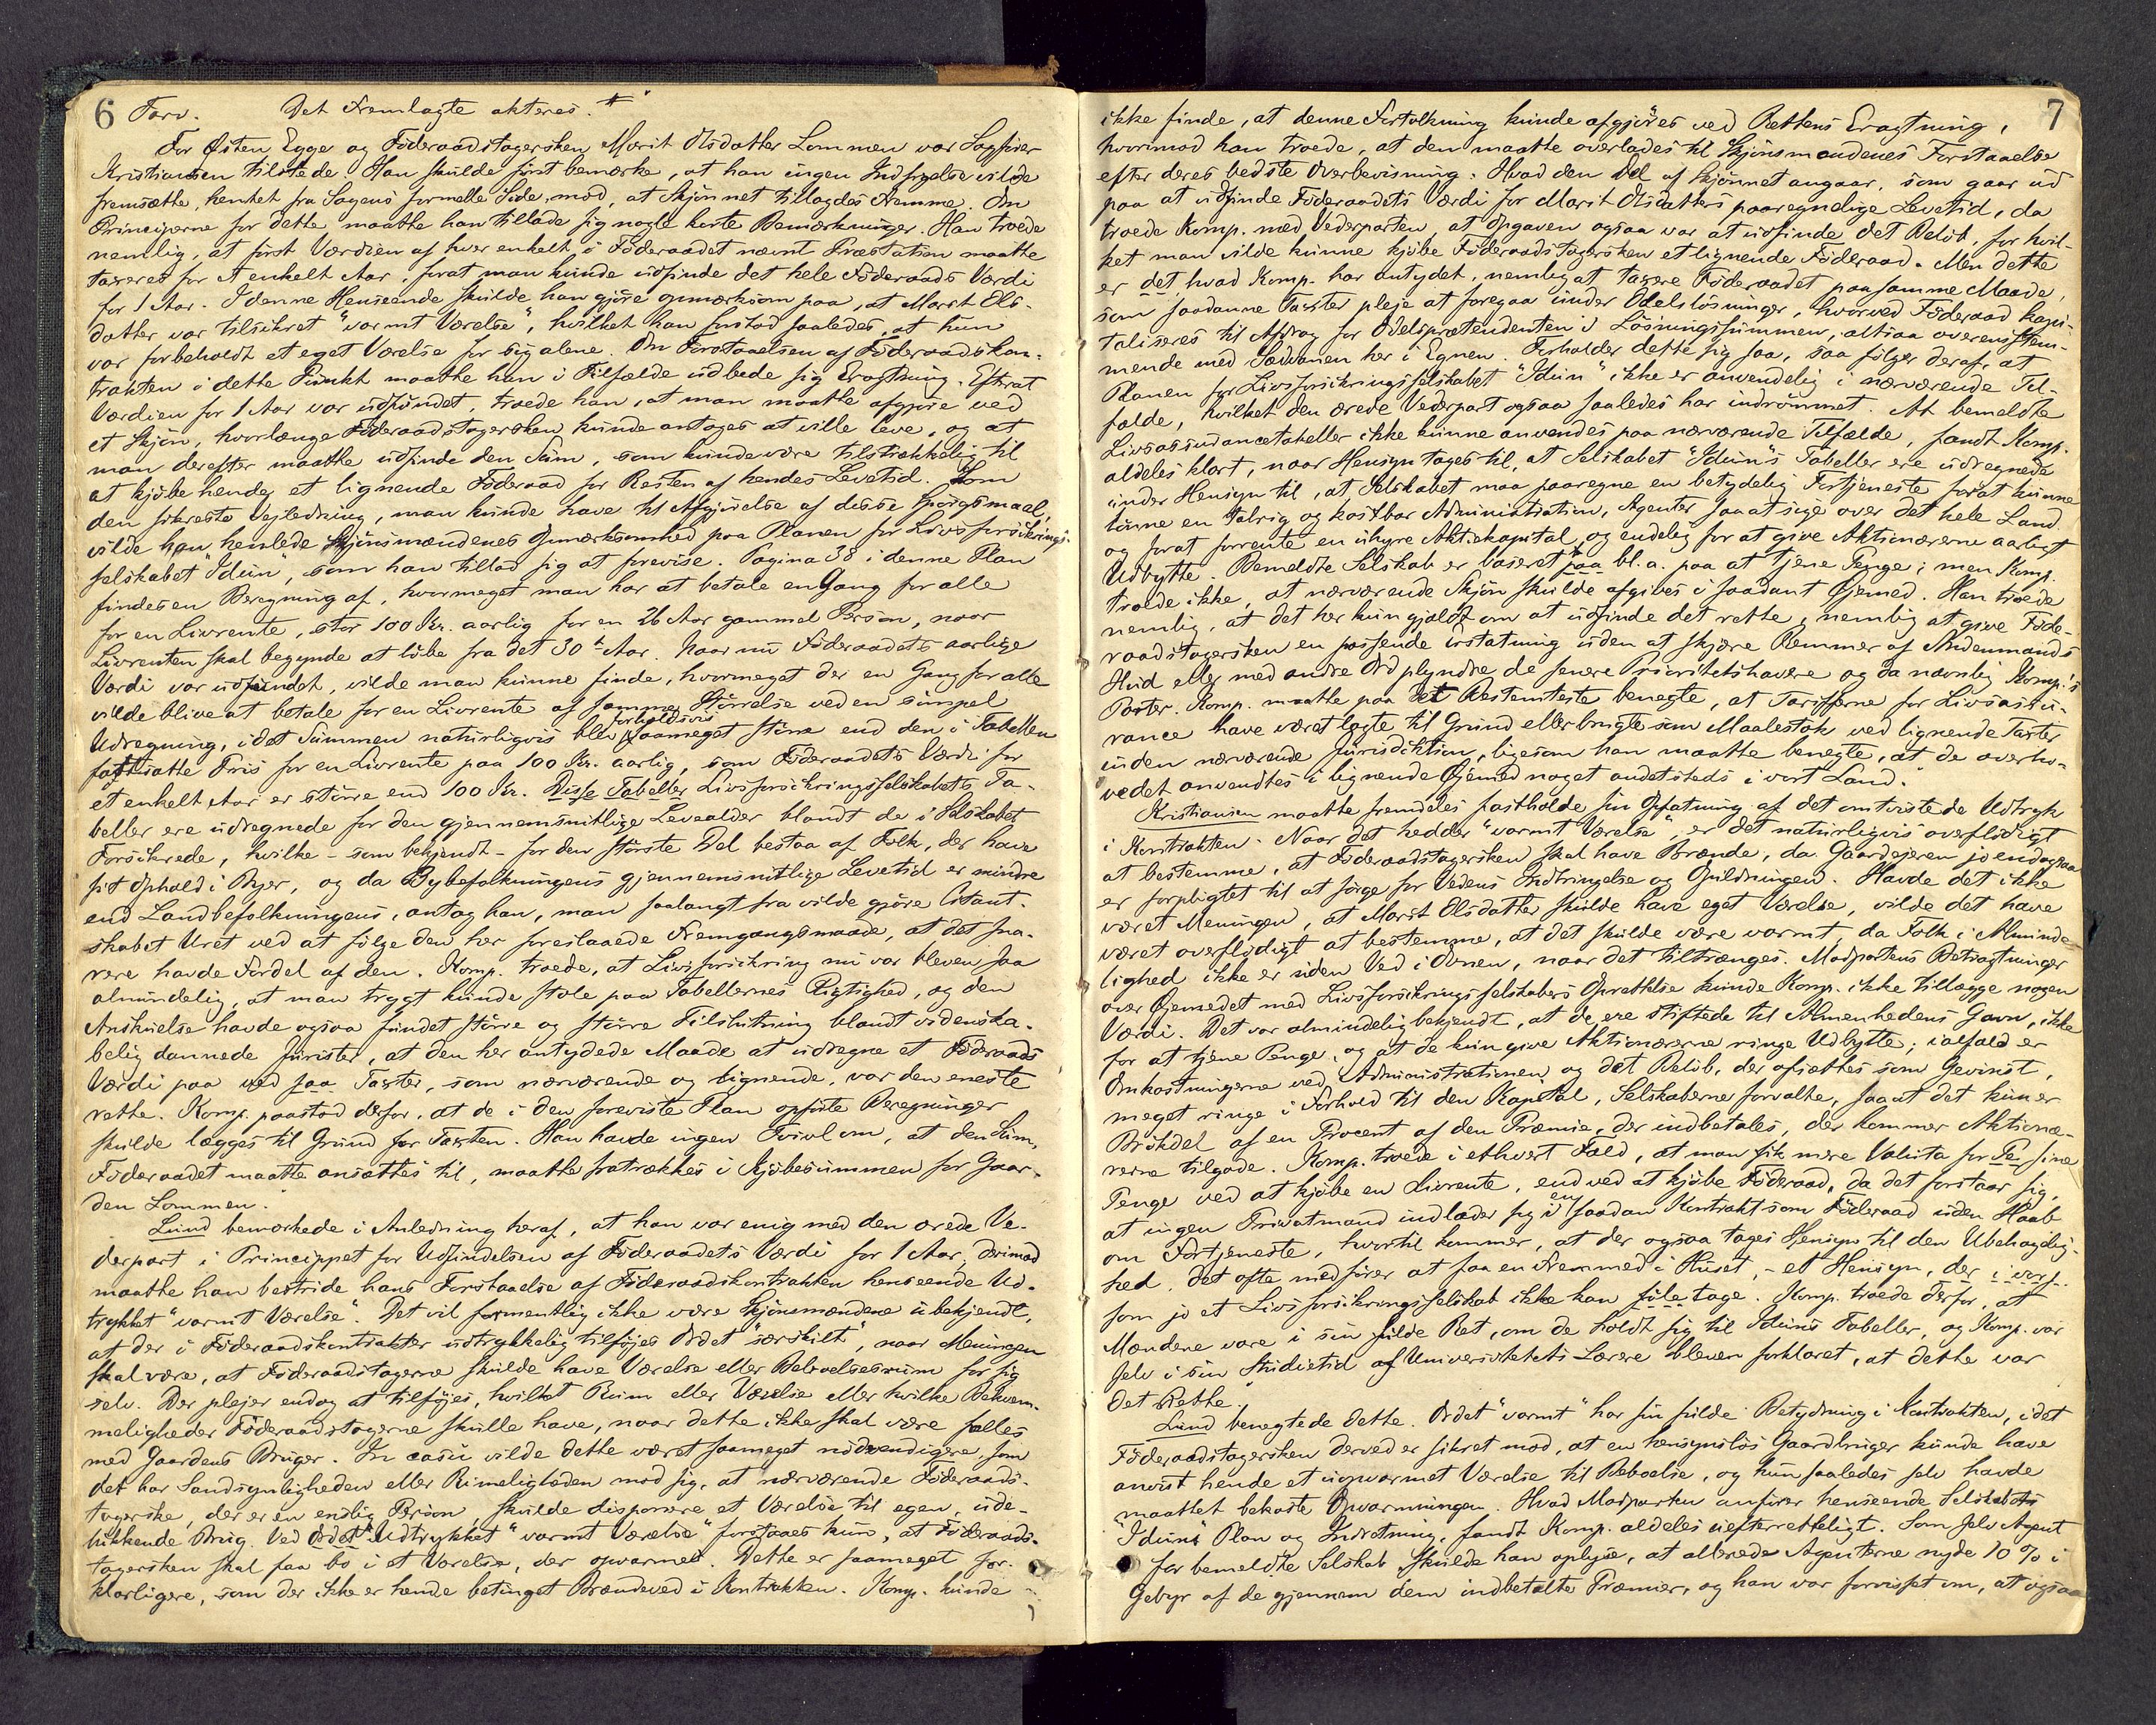 6 Forv. Det Fremlagte akteres. #
For Østen Egge og Föderaadstagersken Marit Olsdatter Lommen var Sagfører
Kristiansen tilstede. Han skulde først bemærke, at han ingen Indsigelse vilde
fremsætte, hentet fra Sagens formelle Side, mod, at Skjönnet tillagdes Fremme. Om
Principerne for dette maatte han tillade sig nogle korte Bemærkninger. Han troede
nemlig, at først Værdien af hver enkelt i Föderaadet nævnt Præstation maatte
taxeres for et enkelt Aar, forat man kunde udfinde det hele Föderaads Værdi
for 1 Aar. I denne Henseende skulde han gjøre opmærksom paa, at Marit Ols-
datter var tilsikret "varmt Værelse", hvilket han forstod saaledes, at hun
var forbeholdt et eget Værelse for sig alene. Om Forstaaelsen af Föderaadskon-
trakten i dette Punkt maatte han i Tilfælde udbede sig Eragtning. Efterat
Værdien for 1 Aar var udfundet, troede han, at man maatte afgjøre ved
et Skjøn, hvorlænge Föderaadstagersken kunde antages at ville leve, og at
man derefter maatte udfinde den Sum, som kunde være tilstrækkelig til
at kjøbe hende et lignende Föderaad for Resten af hendes Levetid. Som
den sikreste Vejledning, man kunde have til Afgjörelse af disse Spörgsmaal,
vilde han henlede Skjönsmændenes Opmærksomhed paa Planen for Livsforsikrings-
selskabet "Idun", som han tillod sig at forevise. Pagina 38 i denne Plan
findes en Beregning af, hvormeget man har at betale en Gang for alle
for en Livrente, stor 100 Kr. aarlig for en 26 Aar gammel Person, naar
Livrenten skal begynde at löbe fra det 30te Aar. Naar nu Föderaadets aarlige
Værdi var udfundet, vilde man kunne finde, hvormeget der en Gang for alle
vilde blive at betale for en Livrente af samme Störrelse ved en simpel
Udregning, idet Summen naturligvis blev forholdsvis saameget större end den i Tabellen
fastsatte Pris for en Livrente paa 100 Kr. aarlig, som Föderaadets Værdi for
et enkelt Aar er större end 100 Kr. Disse Tabeller Livsforsikringsselskabets Ta-
beller ere udregnede for den gjennemsnitlige Levealder blandt de i Selskabet
Forsikrede, hvilke - som bekjendt - for den störste Del bestaa af Folk, der have
sit Ophold i Byer, og da Bybefolkningens gjennemsnitlige Levetid er mindre
end Landbefolkningens, antog han, man saalangt fra vilde gjöre Citant-
skabet Uret ved at følge den her foreslaaede Fremgangsmaade, at det sna-
rere havde Fordel af den. Komp. troede, at Livsforsikring nu var bleven saa
almindelig, at man trygt kunde stole paa Tabellernes Rigtighed, og den
Anskuelse havde ogsaa fundet större og större Tilslutning blandt videnska-
belig dannede Jurister, at den her antydede Maade at udregne et Föderaads
Værdi paa ved saa Taxter, som nærværende og lignende, var den eneste
rette. Komp. paastod derfor, at de i den foreviste Plan opførte Beregninger
skulde lægges til Grund for Taxten. Han havde ingen Tvivl om, at den Sum,
Föderaadet maatte ansættes til, maatte fratrækkes i Kjöbesummen for Gaar-
den Lommen."
Lund bemærkede i Anledning heraf, at han var enig med den ærede Ve-
derpart i Princippet for Udfindelsen af Föderaadets Værdi for 1 Aar; derimod
maatte han bestride hans Forstaaelse af Föderaadskontrakten henseende Ud-
trykket "varmt Værelse". Det vil formentlig ikke være Skjönsmændene ubekjendt,
at der i Föderaadskontrakter udtrykkelig tilföjes Ordet "særskilt", naar Meningen
skal være, at Föderaadstagerne skulde have Værelse eller Beboelsesrum for sig
selv. Der plejer endog at tilföjes, hvilket Rum eller Værelse eller hvilke Bekvem-
meligheder Föderaadstagerne skulle have, naar dette ikke skal være fælles
med Gaardens Bruger. In casu vilde dette været saameget nödvendigere, som
det har Sandsynligheden eller Rimeligheden mod sig, at nærværende Föderaads-
tagerske, der er en enslig Person, skulde disponere et Værelse til egen, ude-
lukkende Brug. Ved Ordet Udtrykket "varmt Værelse" forstaaes kun, at Föderaads-
tagersken skal faa bo i et Værelse, der opvarmes. Dette er saameget for-
klarligere, som der ikke er hende betinget Brændeved i Kontrakten. Komp. kunde
7
ikke finde, at denne Fortolkning kunde afgjöres ved Rettens Eragtning,
hvorimod han troede, at den maatte overlades til Skjönsmændenes Forstaaelse
efter deres bedste Overbevisning. Hvad den Del af Skjönnet angaar, som gaar ud
paa at udfinde Föderaadets Værdi for Marit Olsdatters paaregnelige Levetid, da
troede Komp. med Vederparten, at Opgaven ogsaa var at udfinde det Belöb, for hvil-
ket man vilde kunne kjöbe Föderaadstagersken et lignende Föderaad. Men dette
er det hvad Komp. har antydet, nemlig at taxere Föderaadet paa samme Maade,
som saadanne Taxter pleje at foregaa under Odelslösninger, hvorved Föderaad kapi-
taliseres til Afdrag for Odelsprætendenten i Lösningssummen, altsaa overensstem-
mende med Sædvanen her i Egnen. Forholder dette sig saa, saa fölger deraf, at
Planen for Livsforsikringsselskabet "Idun" ikke er anvendelig i nærværende Til-
fælde, hvilket den ærede Vederpart ogsaa saaledes har indrömmet. At bemeldte
Livsassurancetabeller ikke kunne anvendes paa nærværende Tilfælde, fandt Komp.
aldeles klart, naar Hensyn tages til, at Selskabet "Idun"s Tabeller ere udregnede
under Hensyn til, at Selskabet maa paaregne en betydelig Fortjeneste forat kunne
lönne en talrig og kostbar Administration, Agenter saa at sige over det hele Land
og forat forrente en uhyre Aktiekapital, og endelig for at give Aktionærerne aarligt
Udbytte. Bemeldte Selskab er baseret paa bl. a. paa at tjene Penge; men Komp.
troede ikke, at nærværende Skjön skulde afgives i saadant Öjemed. Han troede
nemlig, at det her kun gjaldt om at udfinde det rette, nemlig at give Föde-
raadstagersken en passende Erstatning uden at skjære Remmer af Andenmands
Hud eller med andre Ord plyndre de senere Prioritetshavere og da navnlig Komp.'s
Parter. Komp. maatte paa det Bestemteste benegte, at Tarifferne for Livsassu-
rance have været lagte til Grund eller brugte som Maalestok ved lignende Taxter
inden nærværende Jurisdiktion, ligesom han maatte benegte, at de overho-
vedet anvendtes i lignende Öjemed noget andetsteds i vort Land."
Kristiansen maatte fremdeles fastholde sin Opfatning af det omtvistede Udtryk
i Kontrakten. Naar det hedder "varmt Værelse", er det naturligvis overflödigt
at bestemme, at Föderaadstagersken skal have Brænde, da Gaardejeren jo endogsaa
er forpligtet til at sörge for Vedens Indbringelse og Opildningen. Havde det ikke
været Meningen, at Marit Olsdatter skulde have eget Værelse, vilde det have
været overflödigt at bestemme, at det skulde være varmt, da Folk i Alminde-
lighed ikke er uden Ved i Ovnen, naar det tiltrænges. Modpartens Betragtninger
over Öjemedet med Livsforsikringsselskabers Oprettelse kunde Komp. ikke tillægge nogen
Værdi. Det var almindelig bekjendt, at de ere stiftede til Almenhedens Gavn, ikke
for at tjene Penge, og at de kun give Aktionærerne ringe Udbytte; ialfald er
Omkostningerne ved Administrationen og det Belöb, der afsættes som Gevinst,
meget ringe i Forhold til den Kapital, Selskaberne forvalte, saa at det kun er
Brökdel af en Procent af den Præmie, der indbetales, der kommer Aktionæ-
rerne tilgode. Komp. troede i ethvert Fald, at man fik mere Valuta for Pe sine
Penge ved at kjöbe en Livrente, end ved at kjöbe Föderaad, da det forstaar sig,
at ingen Privatmand indlader sig i en saadan Kontrakt som Föderaad uden Haab
om Fortjeneste, hvortil kommer, at der ogsaa tages Hensyn til den Ubehagelig-
hed, det ofte medförer at faa en Fremmed i Huset, - et Hensyn, der i 
som jo et Livsforsikringsselskab ikke kan föle tage. Komp. troede derfor, at
Mændene vare i sin fulde Ret, om de holdt sig til Iduns Tabeller, og Komp. var
selv i sin Studietid af Universitetets Lærere bleven forklaret, at dette var
det Rette."
Lund benegtede dette. Ordet "varmt" har sin fulde Betydning i Kontrakten, idet
Föderaadstagersken derved er sikret mod, at en hensynslös Gaardbruger kunde have
anvist hende et uopvarmet Værelse til Beboelse, og hun saaledes selv havde
maattet bekoste Opvarmningen. Hvad Modparten anförer henseende Selskabets
"Iduns" Plan og Indretning, fandt Komp. aldeles uefterretteligt. Som selv Agent
for bemeldte Selskab skulde han oplyse, at allerede Agenterne nyde 10 % i
Gebyr af de gjennem dem indbetalte Præmier, og han var forvisset om, at ogsaa